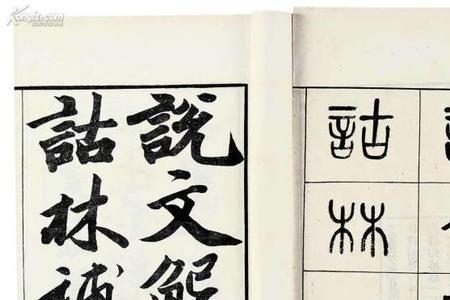 Kongfz.com
說文解
詁林補
詁林